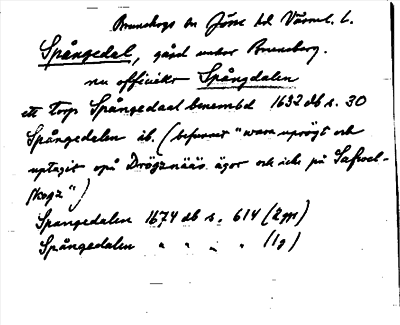 Brunskogs sn Jösse hd Värml. l.
Spångedal, gård under Brunsberg.
nu officiellt Spångdalen
ett torp Spångedaal benembd 1632 db s. 30
Spångedalen ib. (befunnet "wara uprögt och
uptagit opå Drögznääs ägor och icke på Saxwel-
skogz")
Spangedalen 1674 db s. 614 (2 ggr)
Spångedalen " " " " (1 g)